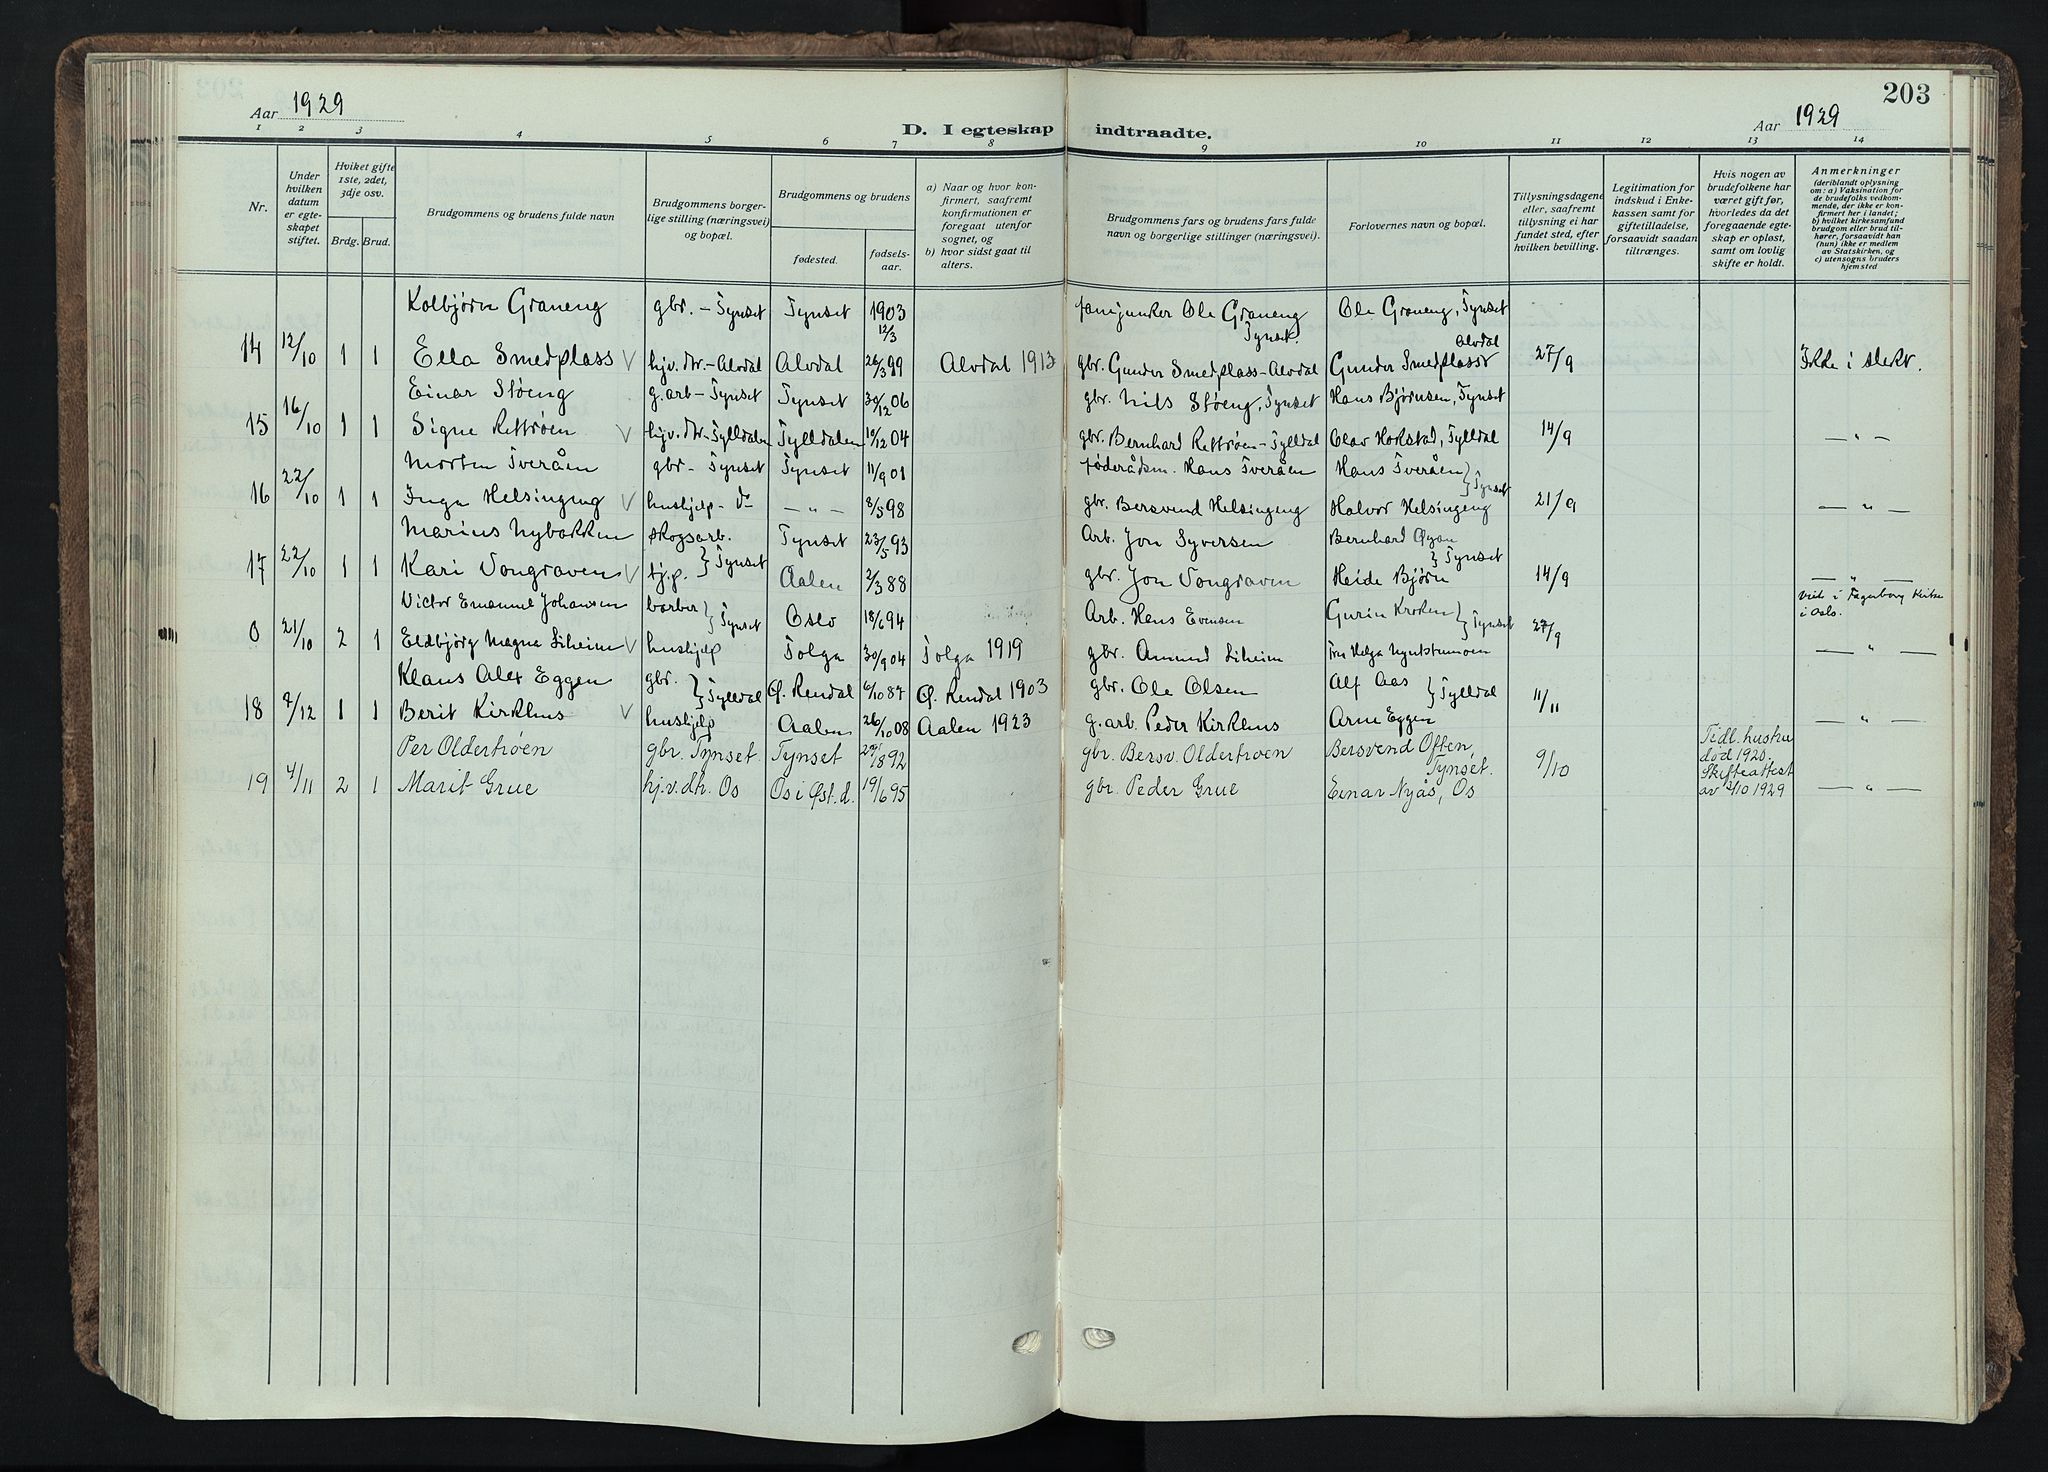 203
Aar 1929
D. I egteskap indtraadte.
Aar 1929
1 2 3 4 5 6 7 8 9 10 11 12 13 14
Nr.
Under hvilken datum er egteskapet stiftet.
Hviket gifte 1ste, 2det, 3dje osv.
Brdg. Brud.
Brudgommens og brudens fulde navn
Brudgommens borgerlige stilling (næringsvei) og bopæl.
Brudgommens og brudens
fødested. fødselsaar.
a) Naar og hvor konfirmert, saafremt konfirmationen er foregaat utenfor sognet, og
b) hvor sidst gaat til alters.
Brudgommens fars og brudens fars fulde navn og borgerlige stillinger (næringsvei).
Forlovernes navn og bopæl.
Tillysningsdagene eller, saafremt tillysning ei har fundet sted, efter hvilken bevilling.
Legitimation for indskud i Enkekassen samt for giftetilladelse, forsaavidt saadan tiltrænges.
Hvis nogen av brudefolkene har været gift før, hvorledes da det foregaaende egteskap er opløst, samt om lovlig skifte er holdt.
Anmerkninger
(deriblandt oplysning om: a) Vaksination for de brudefolks vedkommende, der ikke er konfirmert her i landet; b) hvilket kirkesamfund brudgom eller brud tilhører, forsaavidt han (hun) ikke er medlem av Statskirken, og c) utensogns bruders hjemsted
Kolbjørn Graneng gbr. - Tynset Tynset 1903 12/3 fanejunker Ole Graneng Tynset. Ole Graneng, Tynset
14 12/10 1 1 Ella Smedplass V hjv. dtr. - Alvdal Alvdal 26/3 99 Alvdal 1913 gbr. Gunder Smedplass - Alvdal Gunder Smedplass Alvdal 27/9 Ikke i slekt.
Einar Støeng g.arb - Tynset Tynset 30/12 06 gbr. Nils Støeng, Tynset Hans Bjørnsen, Tynset
15 16/10 1 1 Signe Rettrøen V hjv. dtr - Tylldalen Tylldalen 19/12 04 gbr. Bernhard Rettrøen - Tylldal Olav Hokstad, Tylldal 14/9 — " —
Morten Tveråen gbr - Tynset Tynset 11/9 01 føderådsm. Hans Tveråen Hans Tveråen } Tynset
16 22/10 1 1 Inga Helsingeng V hushjelp - do — " — 8/5 98 gbr. Bersvend Helsingeng Halvor Helsingeng 21/9 — " —
Marius Nybakken skogsarb. } Tynset Tynset 23/5 93 Arb. Jon Syversen Bernhard Øyan } Tynset
17 22/10 1 1 Kari Vongraven V tj.p. Aalen 2/3 88 gbr. Jon Vongraven Heide Bjørn 14/9 — " —
Victor Emanuel Johansen barber } Tynset Oslo 18/6 94 Arb. Hans Evensen Gurin Kroken } Tynset Vied i Fagerborg Kirke i Oslo.
0 21/10 2 1 Eldbjørg Magna Liheim V hushjelp Tolga 30/9 04 Tolga 1919 gbr. Amund Liheim Fru Helga Nyutstumoen 27/9 — " —
Klaus Alex Eggen gbr. } Tylldal Ø. Rendal 6/10 87 Ø. Rendal 1903 gbr. Ole Olsen Alf Aas } Tylldal
18 7/12 1 1 Berit Kirkhus V hushjelp Aalen 26/10 08 Aalen 1923 g.arb. Peder Kirkhus Arne Eggen 11/11 — " —
Per Oldertrøen gbr. Tynset. Tynset 29/8 92 gbr. Bersv. Oldertrøen Bersvend Often, Tynset. Tidl. hustru død 1920, Skifteattest av 3/10 1929
19 4/11 2 1 Marit Grue hj.v.dh. Os Os i Øst.d. 19/6 95 gbr. Peder Grue Einar Nyås, Os 9/10 — " —